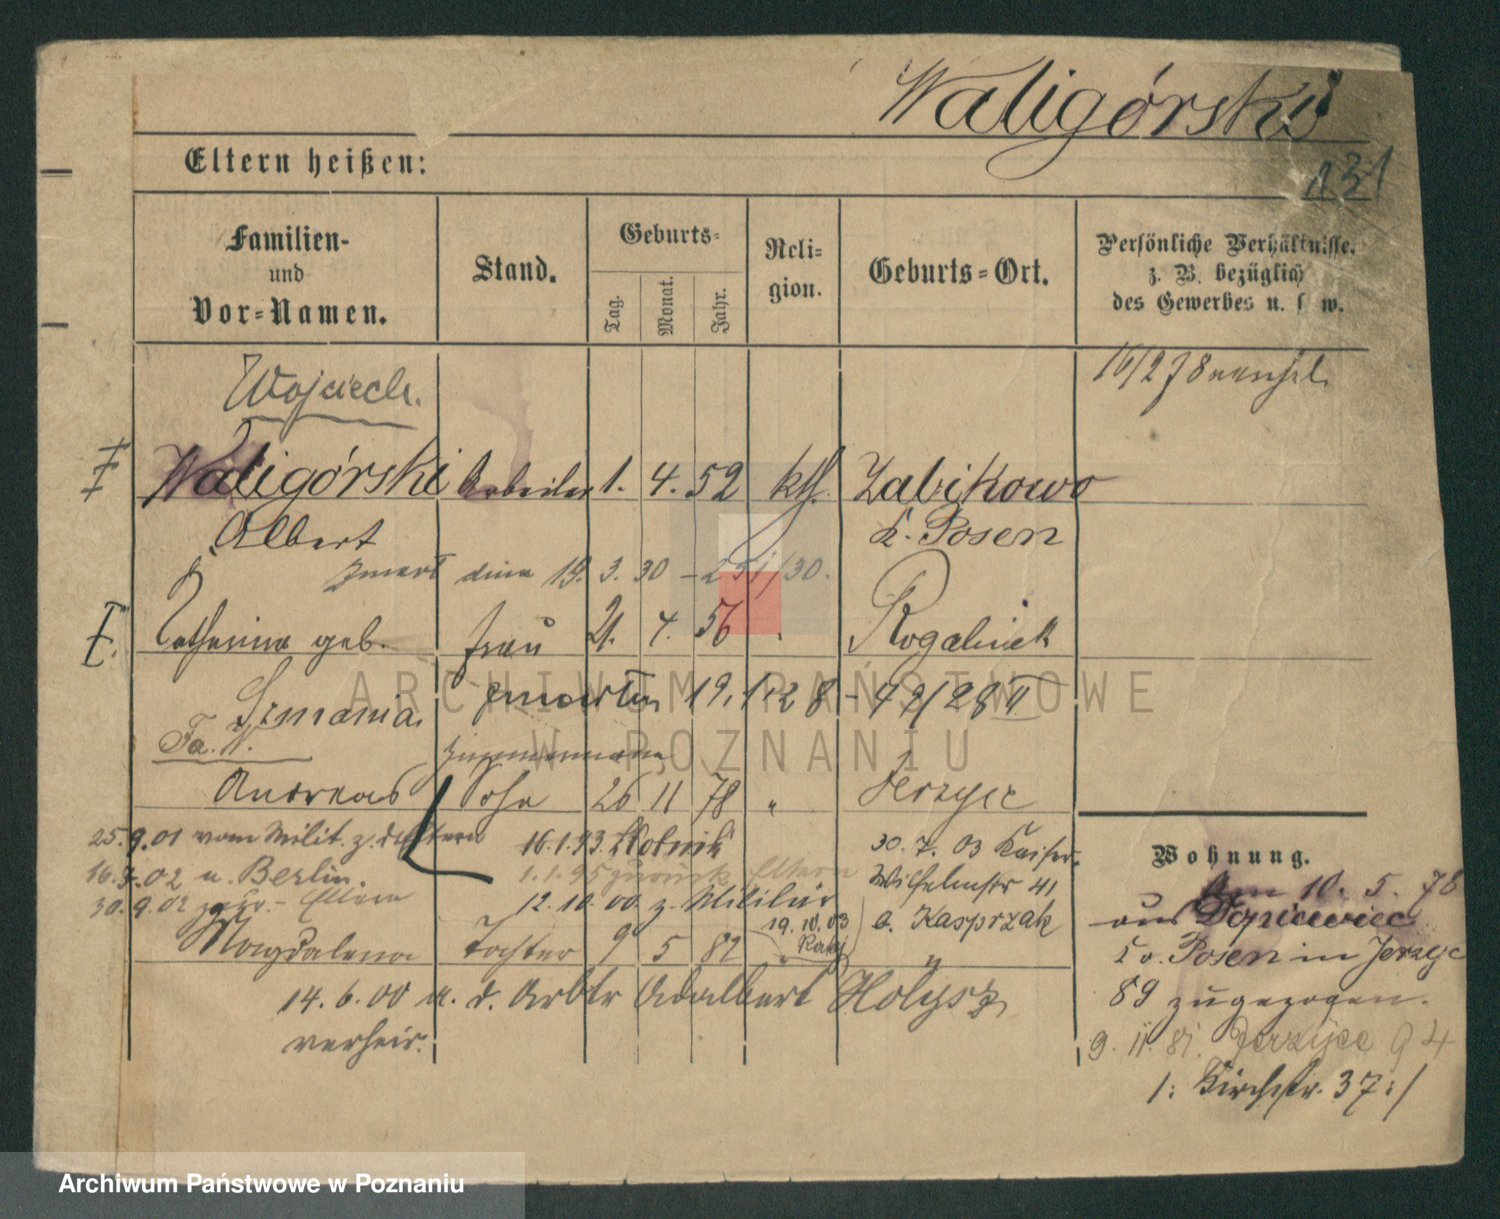 Waligórski
131
Eltern heißen:
Familien-
und
Vor-Namen.
Stand.
Geburts-
Tag.
Monat.
Jahr.
Reli-
gion.
Geburts-Ort.
Persönliche Verhältnisse.
z. B. bezüglich
des Gewerbes u. s w.
16/2 78
Wojciech.
Waligórski Arbeiter 1. 4. 52 kth. Zabikowo
Albert K. Posen
zmarł dnia 19. 3. 30 - 251/30.
Katharina geb. Frau 21. 4. 56 " Rogalinek
Szmania zmarła 19.1.28 - 49/28 II
Fa. W.
Zimmermann
Andreas Sohn 26 11 78 " Jerzyce
25.9.01 vom Milit. z. d. Eltern 16.1.93 Kotnik 30. 7. 03 Kaiser-
16. 02 n. Berlin. 1.1.95 zurück Eltern Wilhelmstr 41
30.9.02 zur. - Eltern 12.10.00 z. Militär b. Kasprzak
19.10.03
Rataj
Magdalena Tochter 9 5 82 " "
14.6.00 m. d. Arbtr Adalbert Hołysz
verheir.
Wohnung.
Am 10. 5. 78
aus
Kr. Posen in Jerzyce
89 zugezogen.
9. 11. 81. Jerzyce 94
1: Kirchstr. 37:/
ARCHIWUM PAŃSTWOWE
W POZNANIU
Archiwum Państwowe w Poznaniu